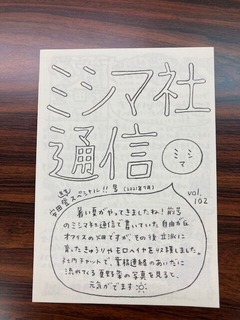 ミシマ社
通信
ミシ
マ
安田登スペシャル!! 号 (2021年7月)
vol.
102
暑い夏がやってきましたね! 前号
のミシマ社通信で書いていた自由が丘
オフィスの畑ですが、その後立派に
育ったきゅうりやモロヘイヤをり穫しました。
社内チャットで、業務連絡のあいだに
流れてくる夏野菜の写真を見ると、
元気がでます